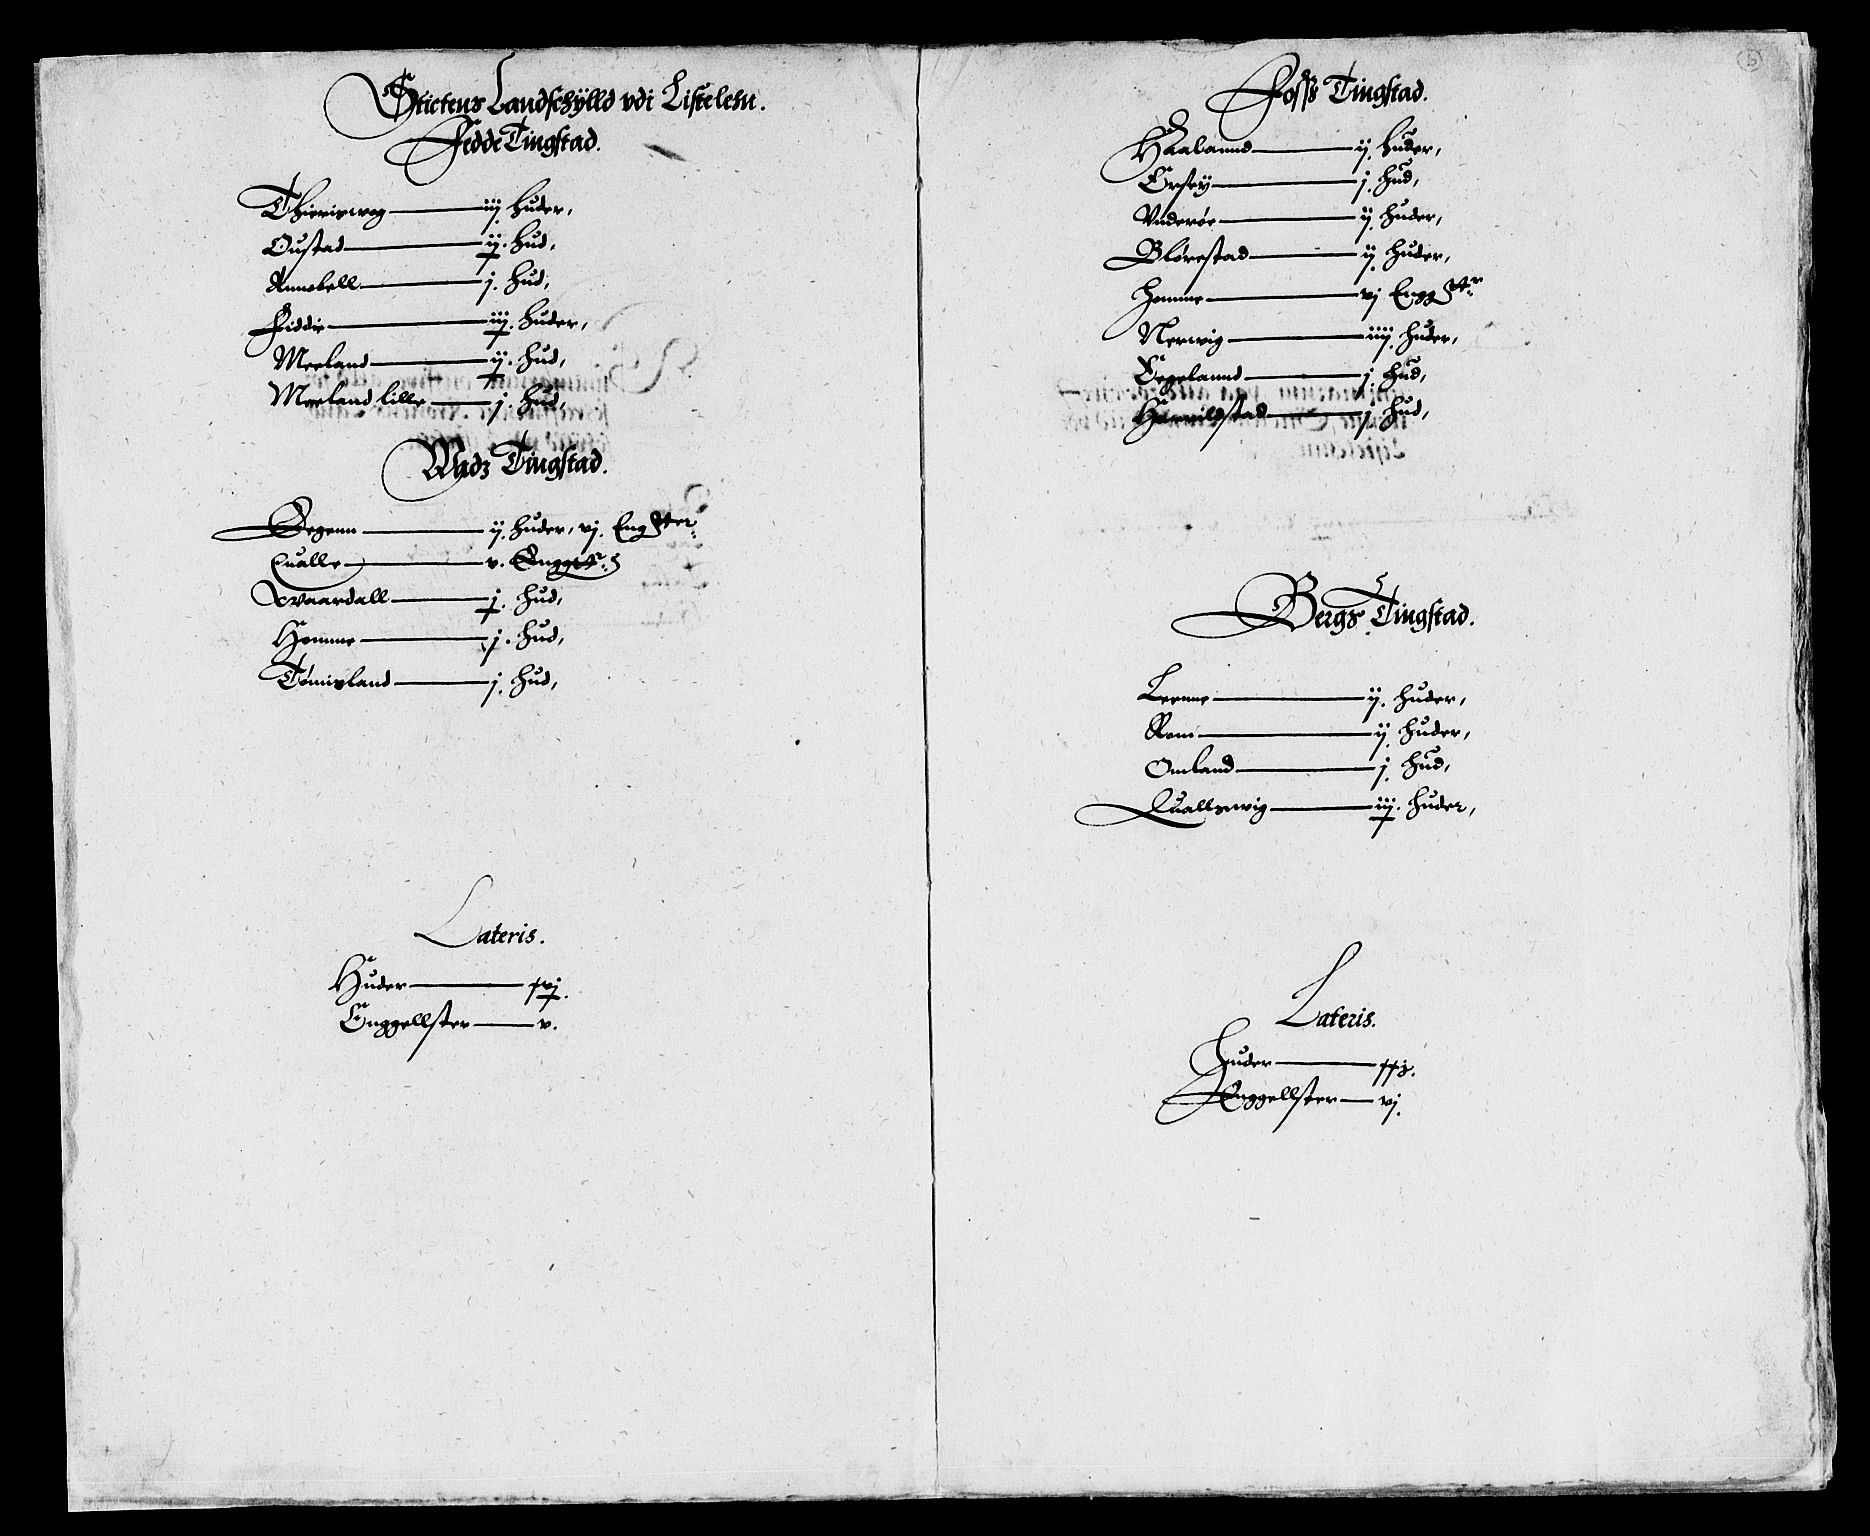 Stictens Landschÿlld vdi Listelehn.
Fedde Tingstad.
Thierisuog iij huder,
Oustad ij. hud,
Annobell j. hud,
Fidde iij. huder,
Meeland ij. hud,
Meeland lille j. hud,
Wadz Tingstad.
Segenn ij. huder, vj. Engster.
Qualle v. Enggstr.
Suaardall j. hud,
Homme j. hud,
Tomisland j. hud,
Lateris.
Huder xvj.
Enggellster v.
Foss Tingstad.
Haaland ij. huder,
Ersey j. hud,
Vnderøe ij. huder,
Blørestad ij huder,
Homme vj Engg str
Nerwig iiij. huder,
Eegelannd j. hud,
Harrildstad j hud,
Bergs Tingstad.
Leenne ij. huder,
Rom ij. huder,
Omland j. hud,
Quallswig iij. huder,
Lateris.
Huder xxj.
Enggellster vj.